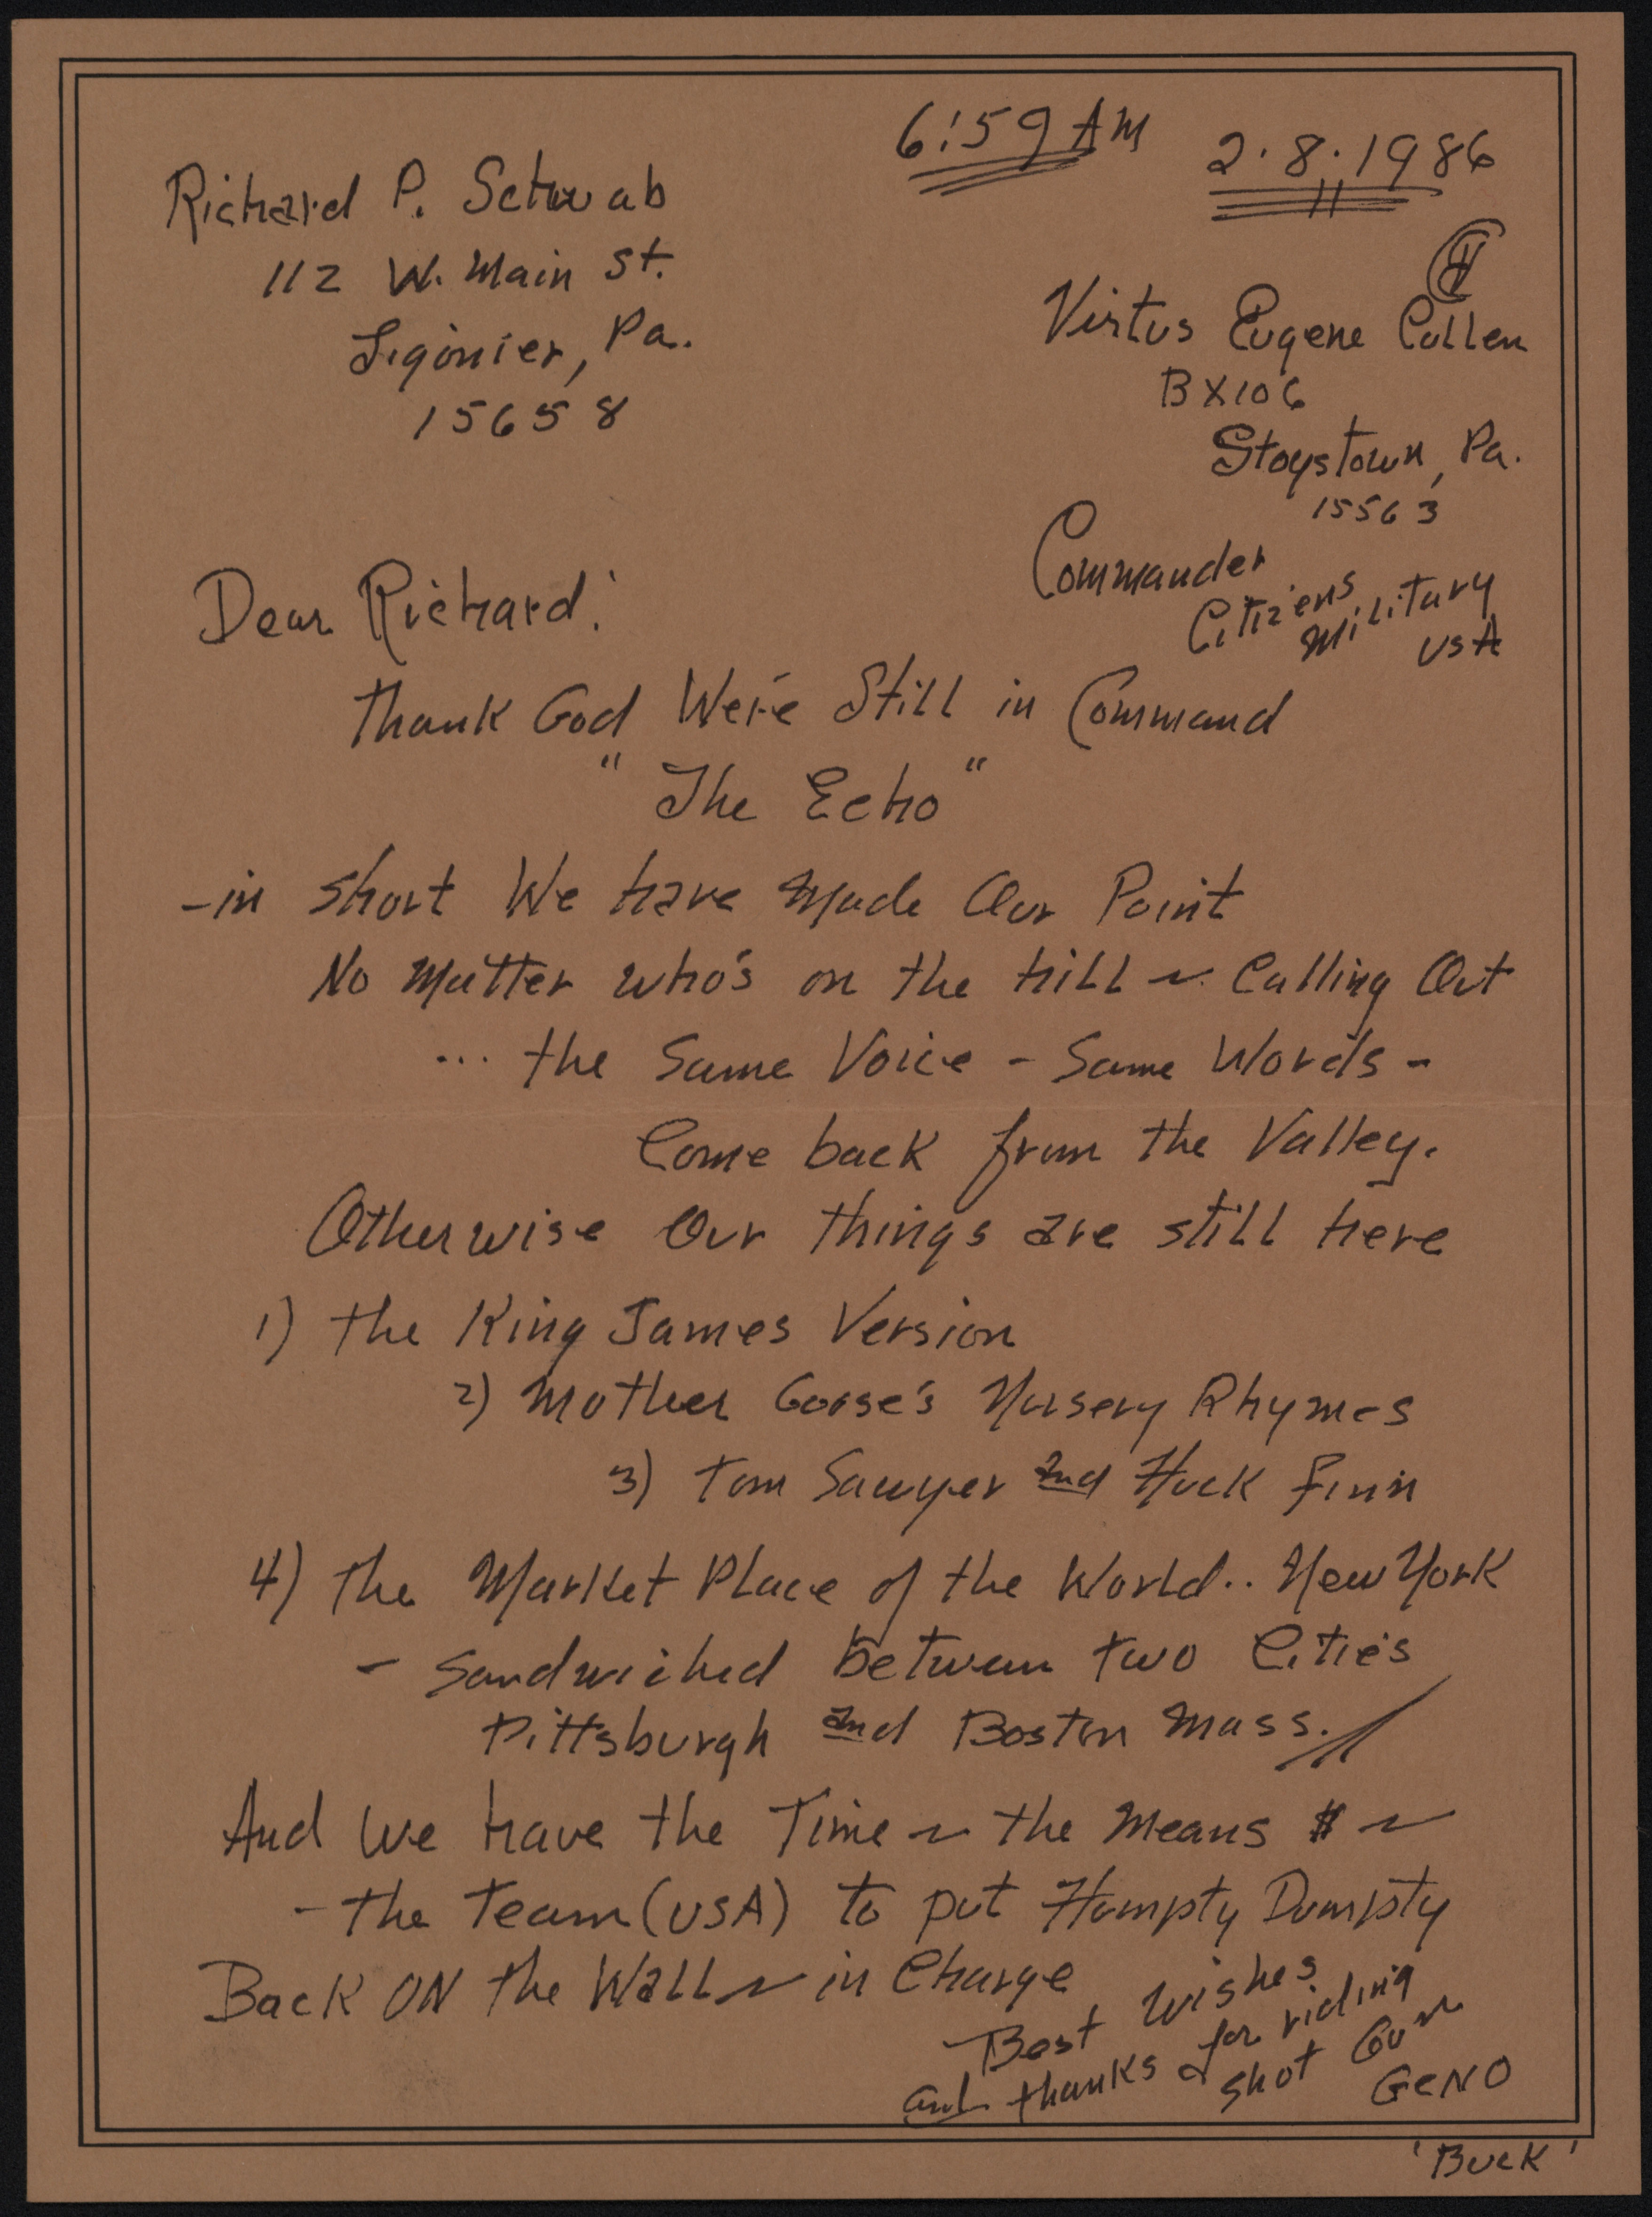 6:59 AM
2.8.1986
Richard P. Schwab
112 W. Main St.
Ligonier, Pa.
15658
Virtus Eugene Cullen
BX106
Stoystown, Pa.
15563
Commander
Citizens
Military
USA
Dear Richard:
Thank God We're Still in Command
"The Echo"
-in short We have Made Our Point
No Matter who's on the hill ~ Calling Out
... the Same Voice - Same Words -
Come back from the Valley.
Otherwise Our things are still here
1) the King James Version
2) Mother Goose's Nursery Rhymes
3) Tom Sawyer and Huck Finn
4) The Market Place of the World.. New York
- Sandwiched between two Cities
Pittsburgh and Boston Mass.
And We have the Time ~ the Means $ ~
- the Team (USA) to put Humpty Dumpty
Back ON the Wall ~ in Charge
Best Wishes
and thanks for riding
shot Gun
GENO
'Buck'